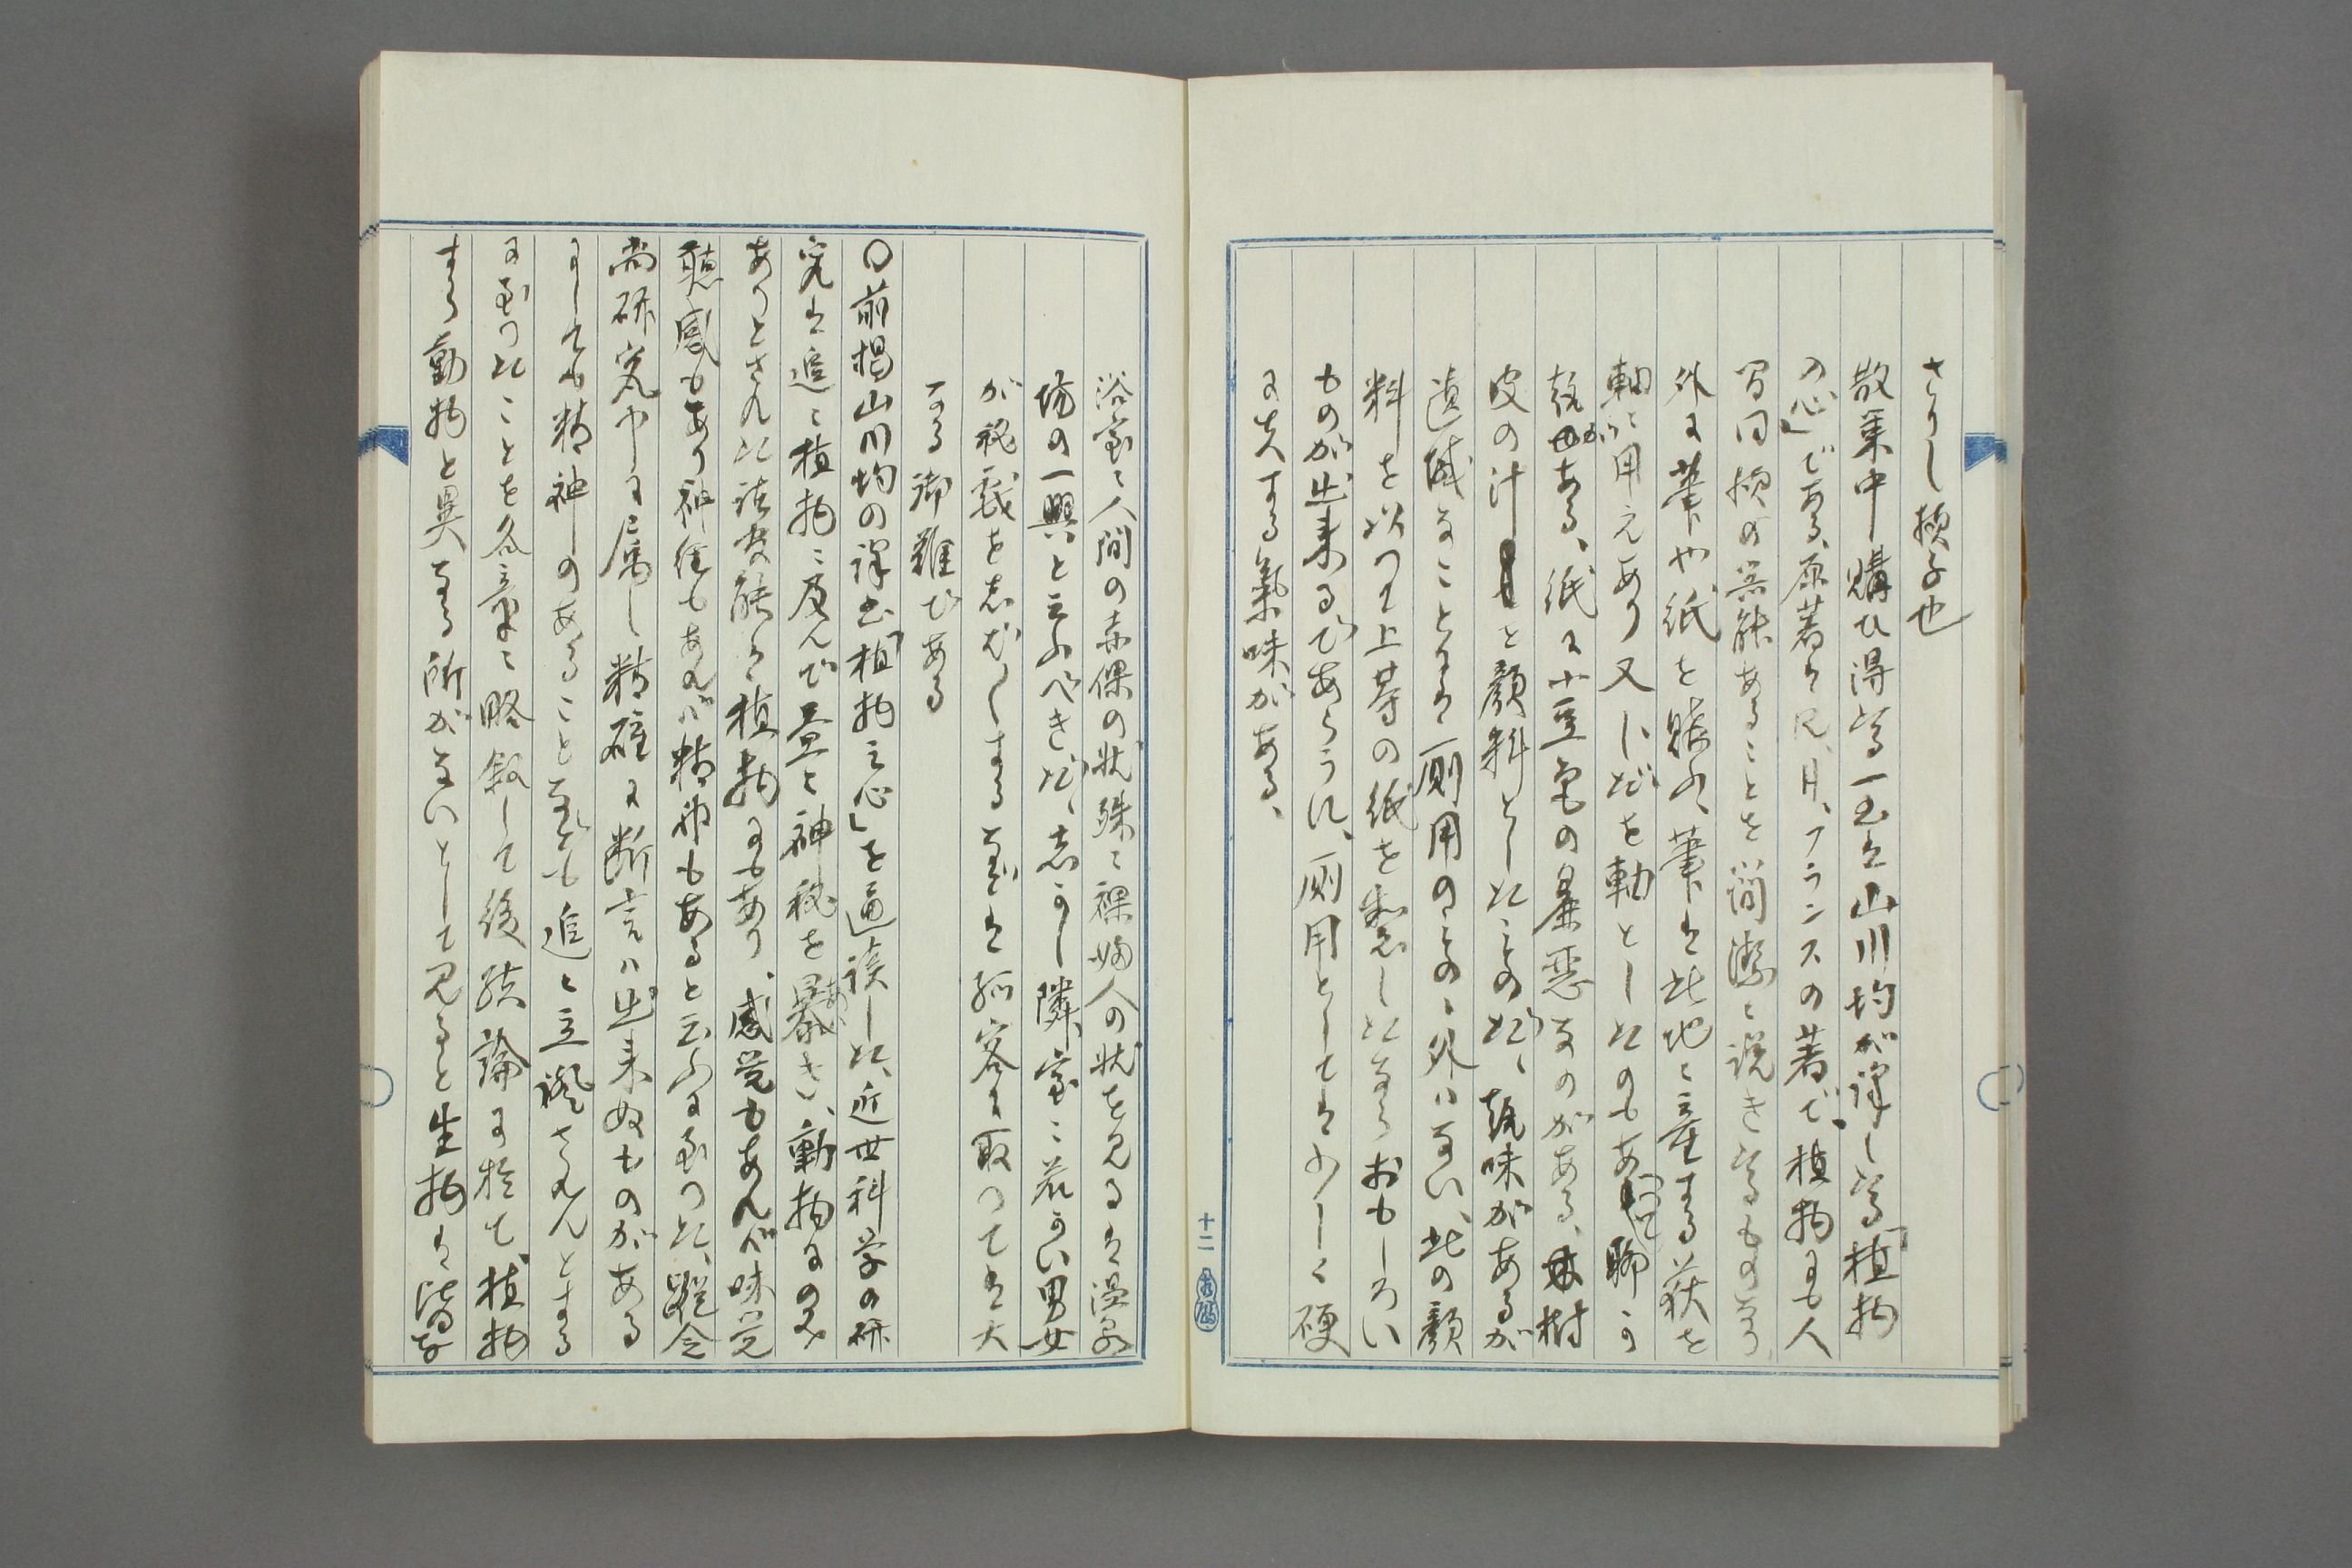 さりし様子也
散策中購ひ得たる一書は山川均が譯したる「植物
の心」である、原著は仏、月、フランスの著で、植物にも人
間同様の官能あることを簡潔に説きたるものなり
外に筆や紙を購ふ、筆は此地に産する萩を
軸に用えあり又しだを軸としたのもあつて聊か
趣がある、紙に小豆色の粗悪なのがある、樹
皮の汁を顔料としたものだ、趣味があるが
遺憾なことには厠用のもの外ハない、此の顔
料を以つて上等の紙を製したならおもしろい
ものが出来るであらうに、厠用としては少しく硬
に失する氣味がある、
十二
浴室に人間の赤裸の状殊に裸婦人の状を見るは温泉
場の一興と云ふべきだ、志かし隣室に若かい男女
が秘戯を志むしするなどは孤客に取つては大
なる御難である
〇前掲山川均の譯書「植物之心」を通読した、近世科学の研
究は追々植物に及んで益々神秘を暴き、動物にのみ
ありとされた諸官能は植物にもあり、感覚もあれバ味覚
聴感もあり神経もあれバ精神もあると云ふに至つた、縦令
尚研究中に属し精確に断言ハ出来ぬものがある
にしても精神のあること なども追々立證されんとする
に至つたことを各章に略叙して後結論に於て、植物
すら動物と異なる所がないとして見ると生物は皆な